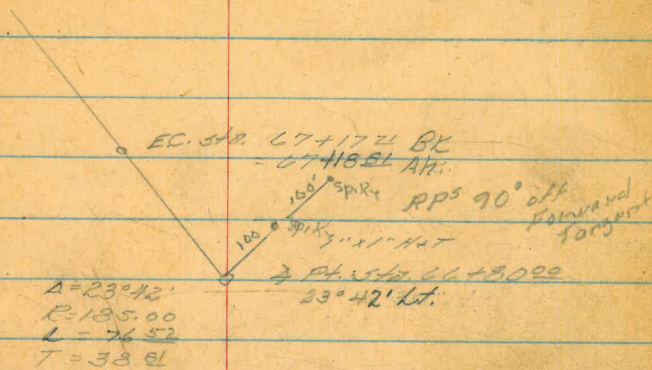 E.C. sta. 67+17 71 BK
= 67+18 81 Ah.
100' Spike
RPs 90° off
Forward
Tangent
100 Spike
1" H&T
∆ Pt. sta. 66+80 00
23°42' Lt.
∆=23°42'
R=185.00
L = 76 52
T = 38 81